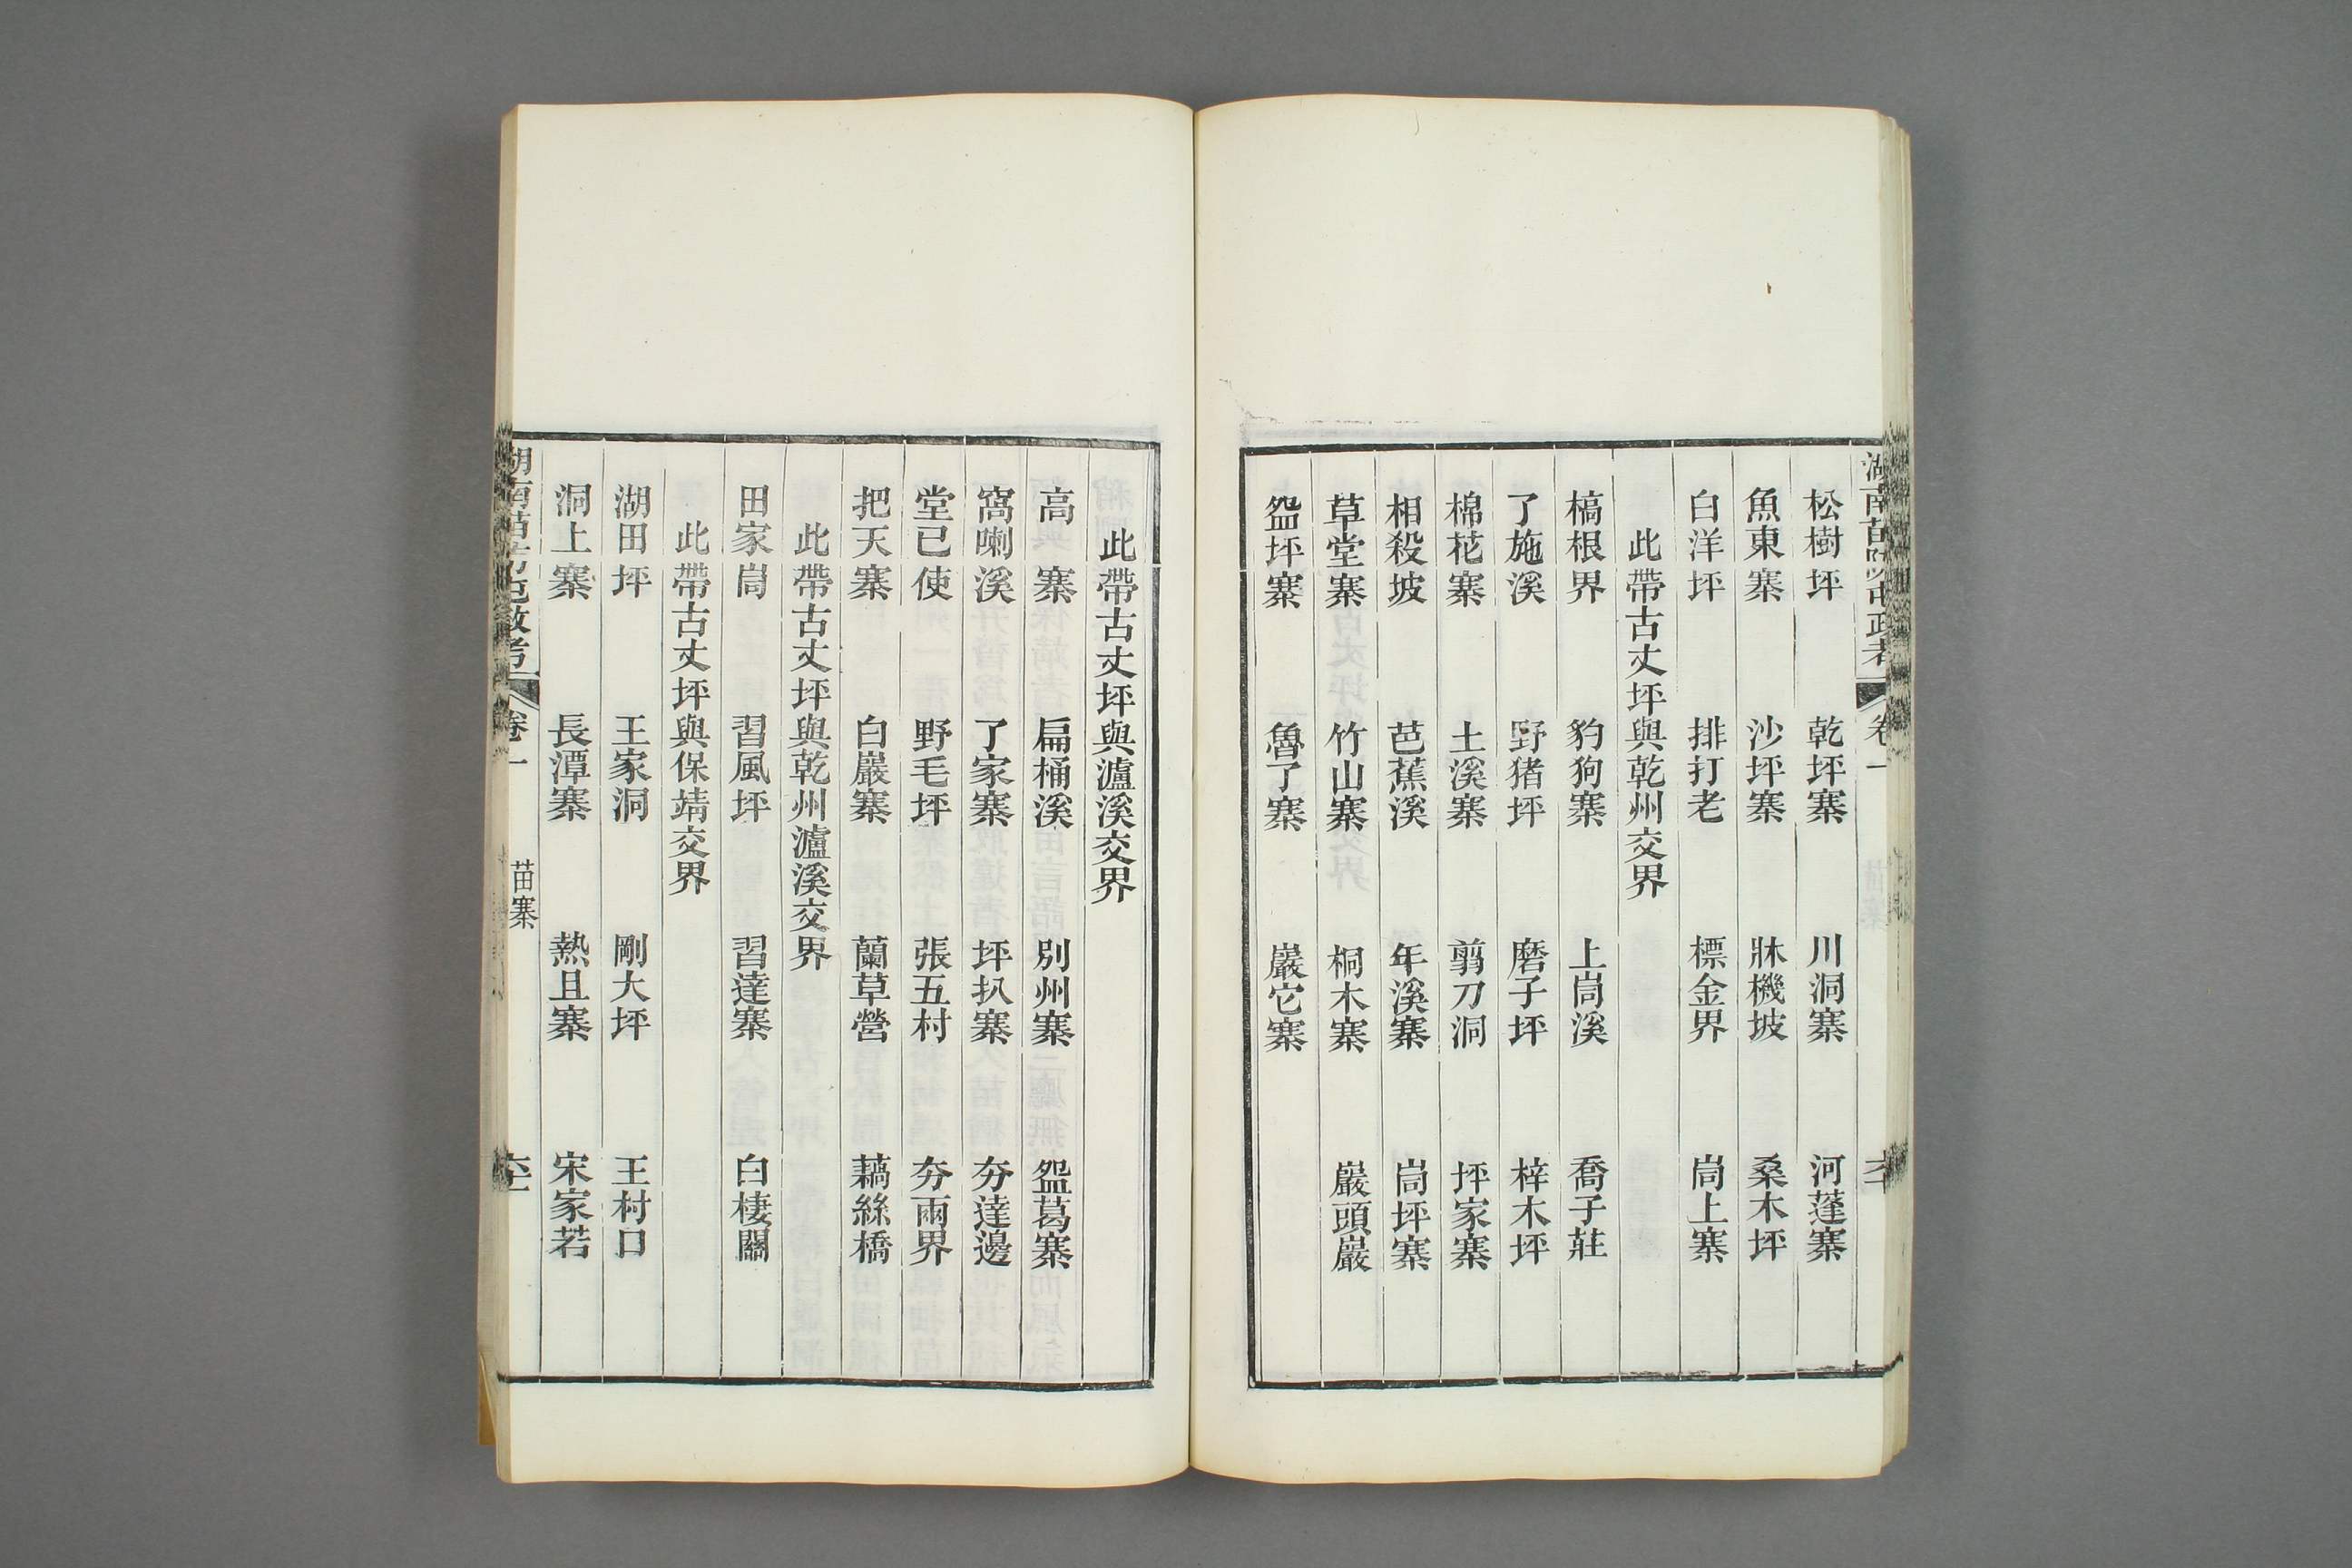 松樹坪 乾坪寨 川洞寨 河蓬寨
魚東寨 沙坪寨 牀機坡 桑木坪
白洋坪 排打老 標金界 峝上寨
此帶古丈坪與乾州交界
槁根界 豹狗寨 上峝溪 喬子莊
了施溪 野猪坪 磨子坪 梓木坪
棉花寨 土溪寨 翦刀洞 坪家寨
相殺坡 芭蕉溪 年溪寨 峝坪寨
草堂寨 竹山寨 桐木寨 巖頭巖
盌坪寨 魯了寨 巖它寨
此帶古丈坪與瀘溪交界
高寨 扁桶溪 別州寨 盌葛寨
窩喇溪 了家寨 坪扒寨 夯達邊
堂已使 野毛坪 張五村 夯兩界
把天寨 白巖寨 蘭草營 藕絲橋
此帶古丈坪與乾州瀘溪交界
田家峝 習風坪 習達寨 白棲關
此帶古丈坪與保靖交界
湖田坪 王家洞 剛大坪 王村口
洞上寨 長潭寨 熱且寨 宋家若
卷一 苗寨